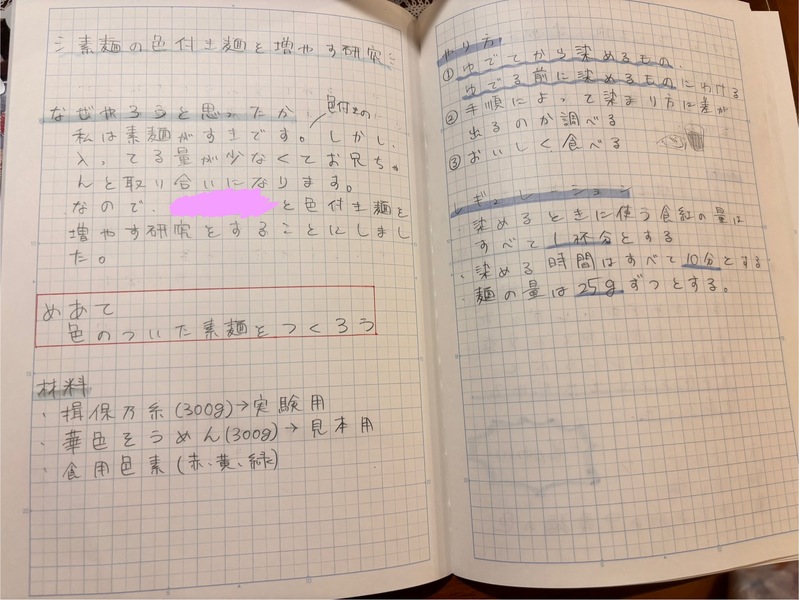 ミ素麺の色付き麺を増やす研究ミ
なぜやろうと思ったか
色付きの
私は素麺がすきです。しかし、
入ってる量が少なくてお兄ちゃ
んと取り合いになります。
なので、
と色付き麺を
増やす研究をすることにしまし
た。
めあて
色のついた素麺をつくろう
材料
・揖保乃糸(300g)→実験用
・華色そうめん(300g)→見本用
・食用色素(赤、黄、緑)
やり方
①ゆでてから染めるもの、
ゆでる前に染めるものにわける
②手順によって染まり方に差が
出るのか調べる
③おいしく食べる
レギュレーション
・染めるときに使う食紅の量は
すべて1杯分とする
・染める時間はすべて10分とする
・麺の量は25gずつとする。